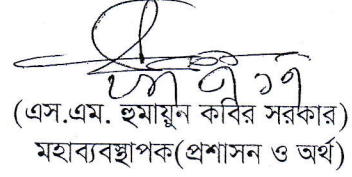 (এস.এম. হুমায়ুন কবির সরকার)
মহাব্যবস্থাপক(প্রশাসন ও অর্থ)